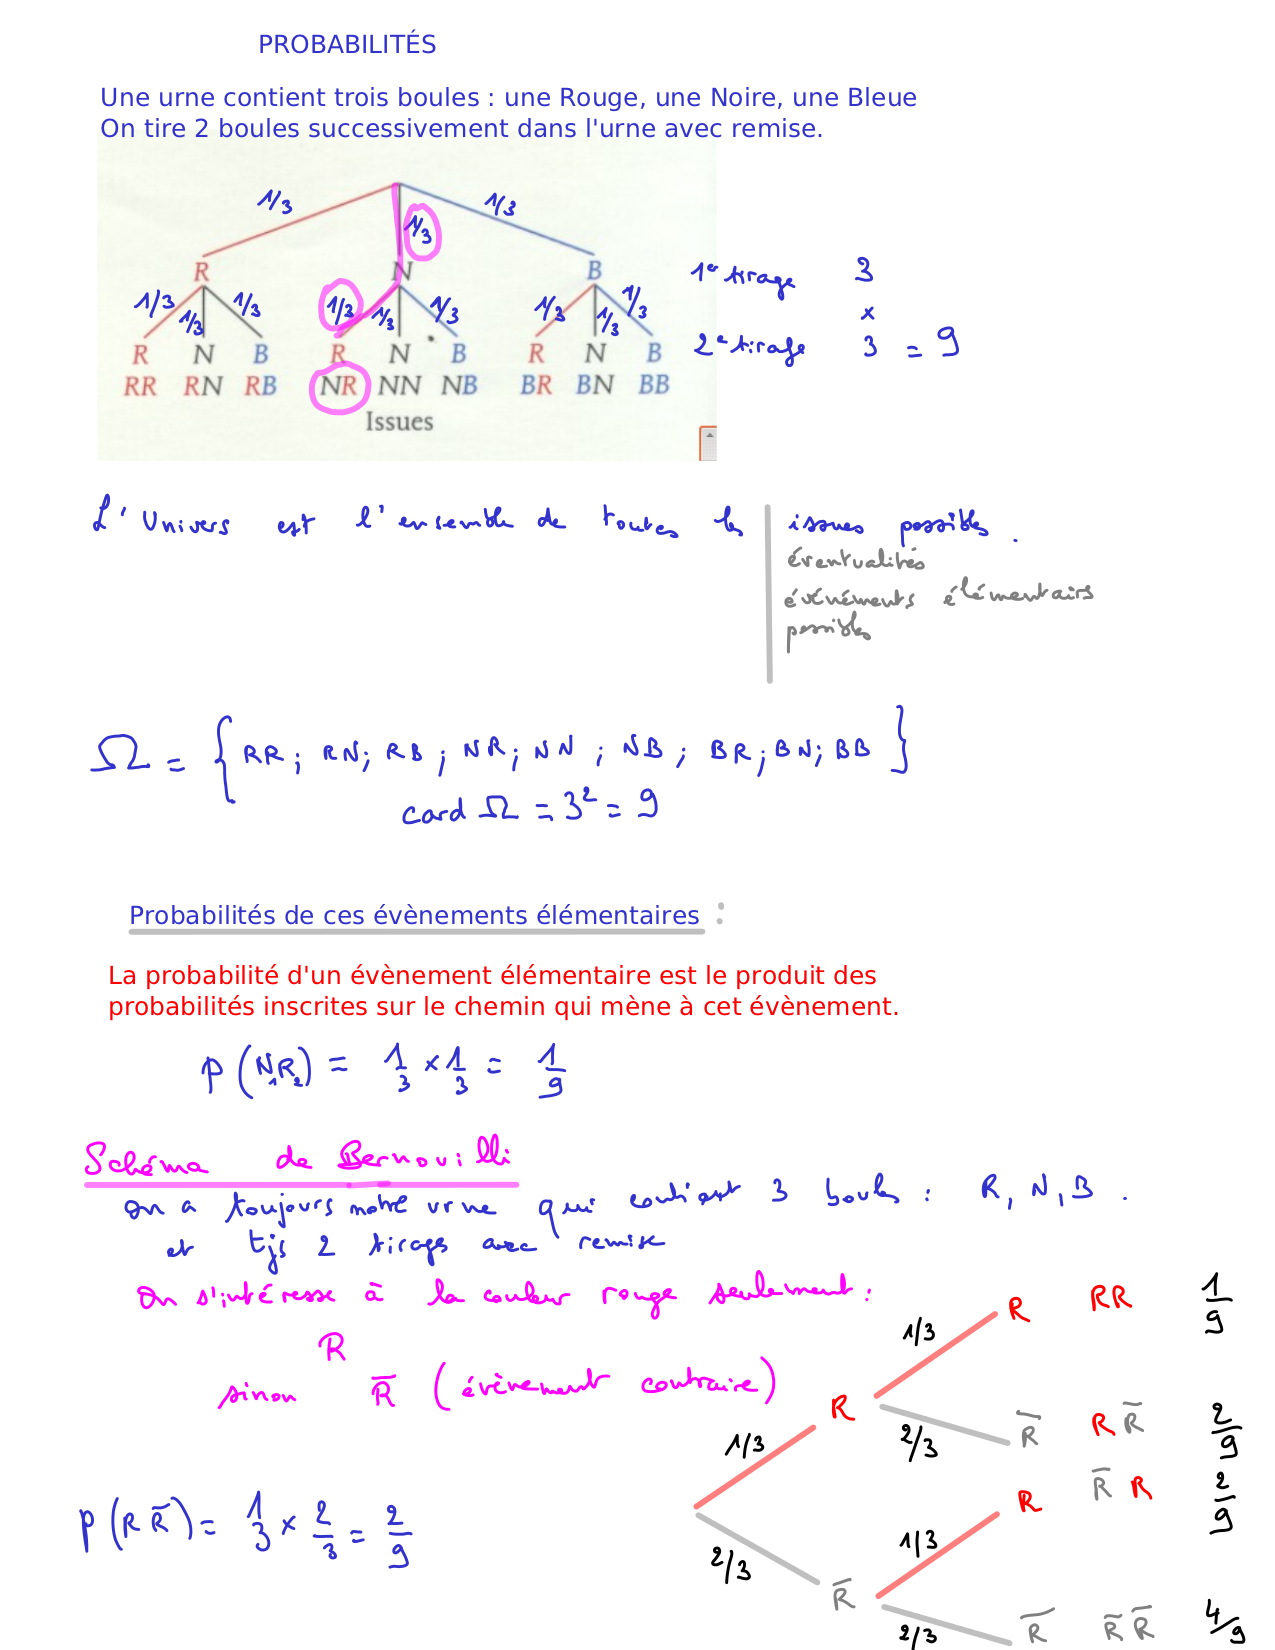 PROBABILITÉS
Une urne contient trois boules : une Rouge, une Noire, une Bleue
On tire 2 boules successivement dans l'urne avec remise.
1/3 1/3 1/3
R N B
1/3 1/3 1/3 1/3 1/3 1/3 1/3 1/3 1/3
R N B R N B R N B
RR RN RB NR NN NB BR BN BB
Issues
1er tirage 3
x
2e tirage 3 = 9
L'Univers est l'ensemble de toutes les issues possibles.
éventualités
événéments élémentairs
possibles
Ω = { RR ; RN ; RB ; NR ; NN ; NB ; BR ; BN ; BB }
card Ω = 3² = 9
Probabilités de ces évènements élémentaires :
La probabilité d'un évènement élémentaire est le produit des
probabilités inscrites sur le chemin qui mène à cet évènement.
p (N₁R₂) = 1/3 × 1/3 = 1/9
Schéma de Bernouilli
on a toujours notre urne qui contient 3 boules : R, N, B .
et tjs 2 tirages avec remise
On s'intéresse à la couleur rouge seulement :
R
sinon R̅ (évènement contraire)
1/3 R RR 1/9
1/3 R 2/3 R̅ R R̅ 2/9
1/3 R R̅ R 2/9
2/3 R̅ 2/3 R̅ R̅ R̅ 4/9
p (R R̅) = 1/3 × 2/3 = 2/9